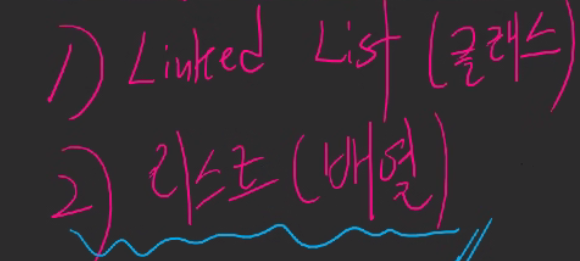 1) Linked List (클래스)
2) 리스트 (배열)